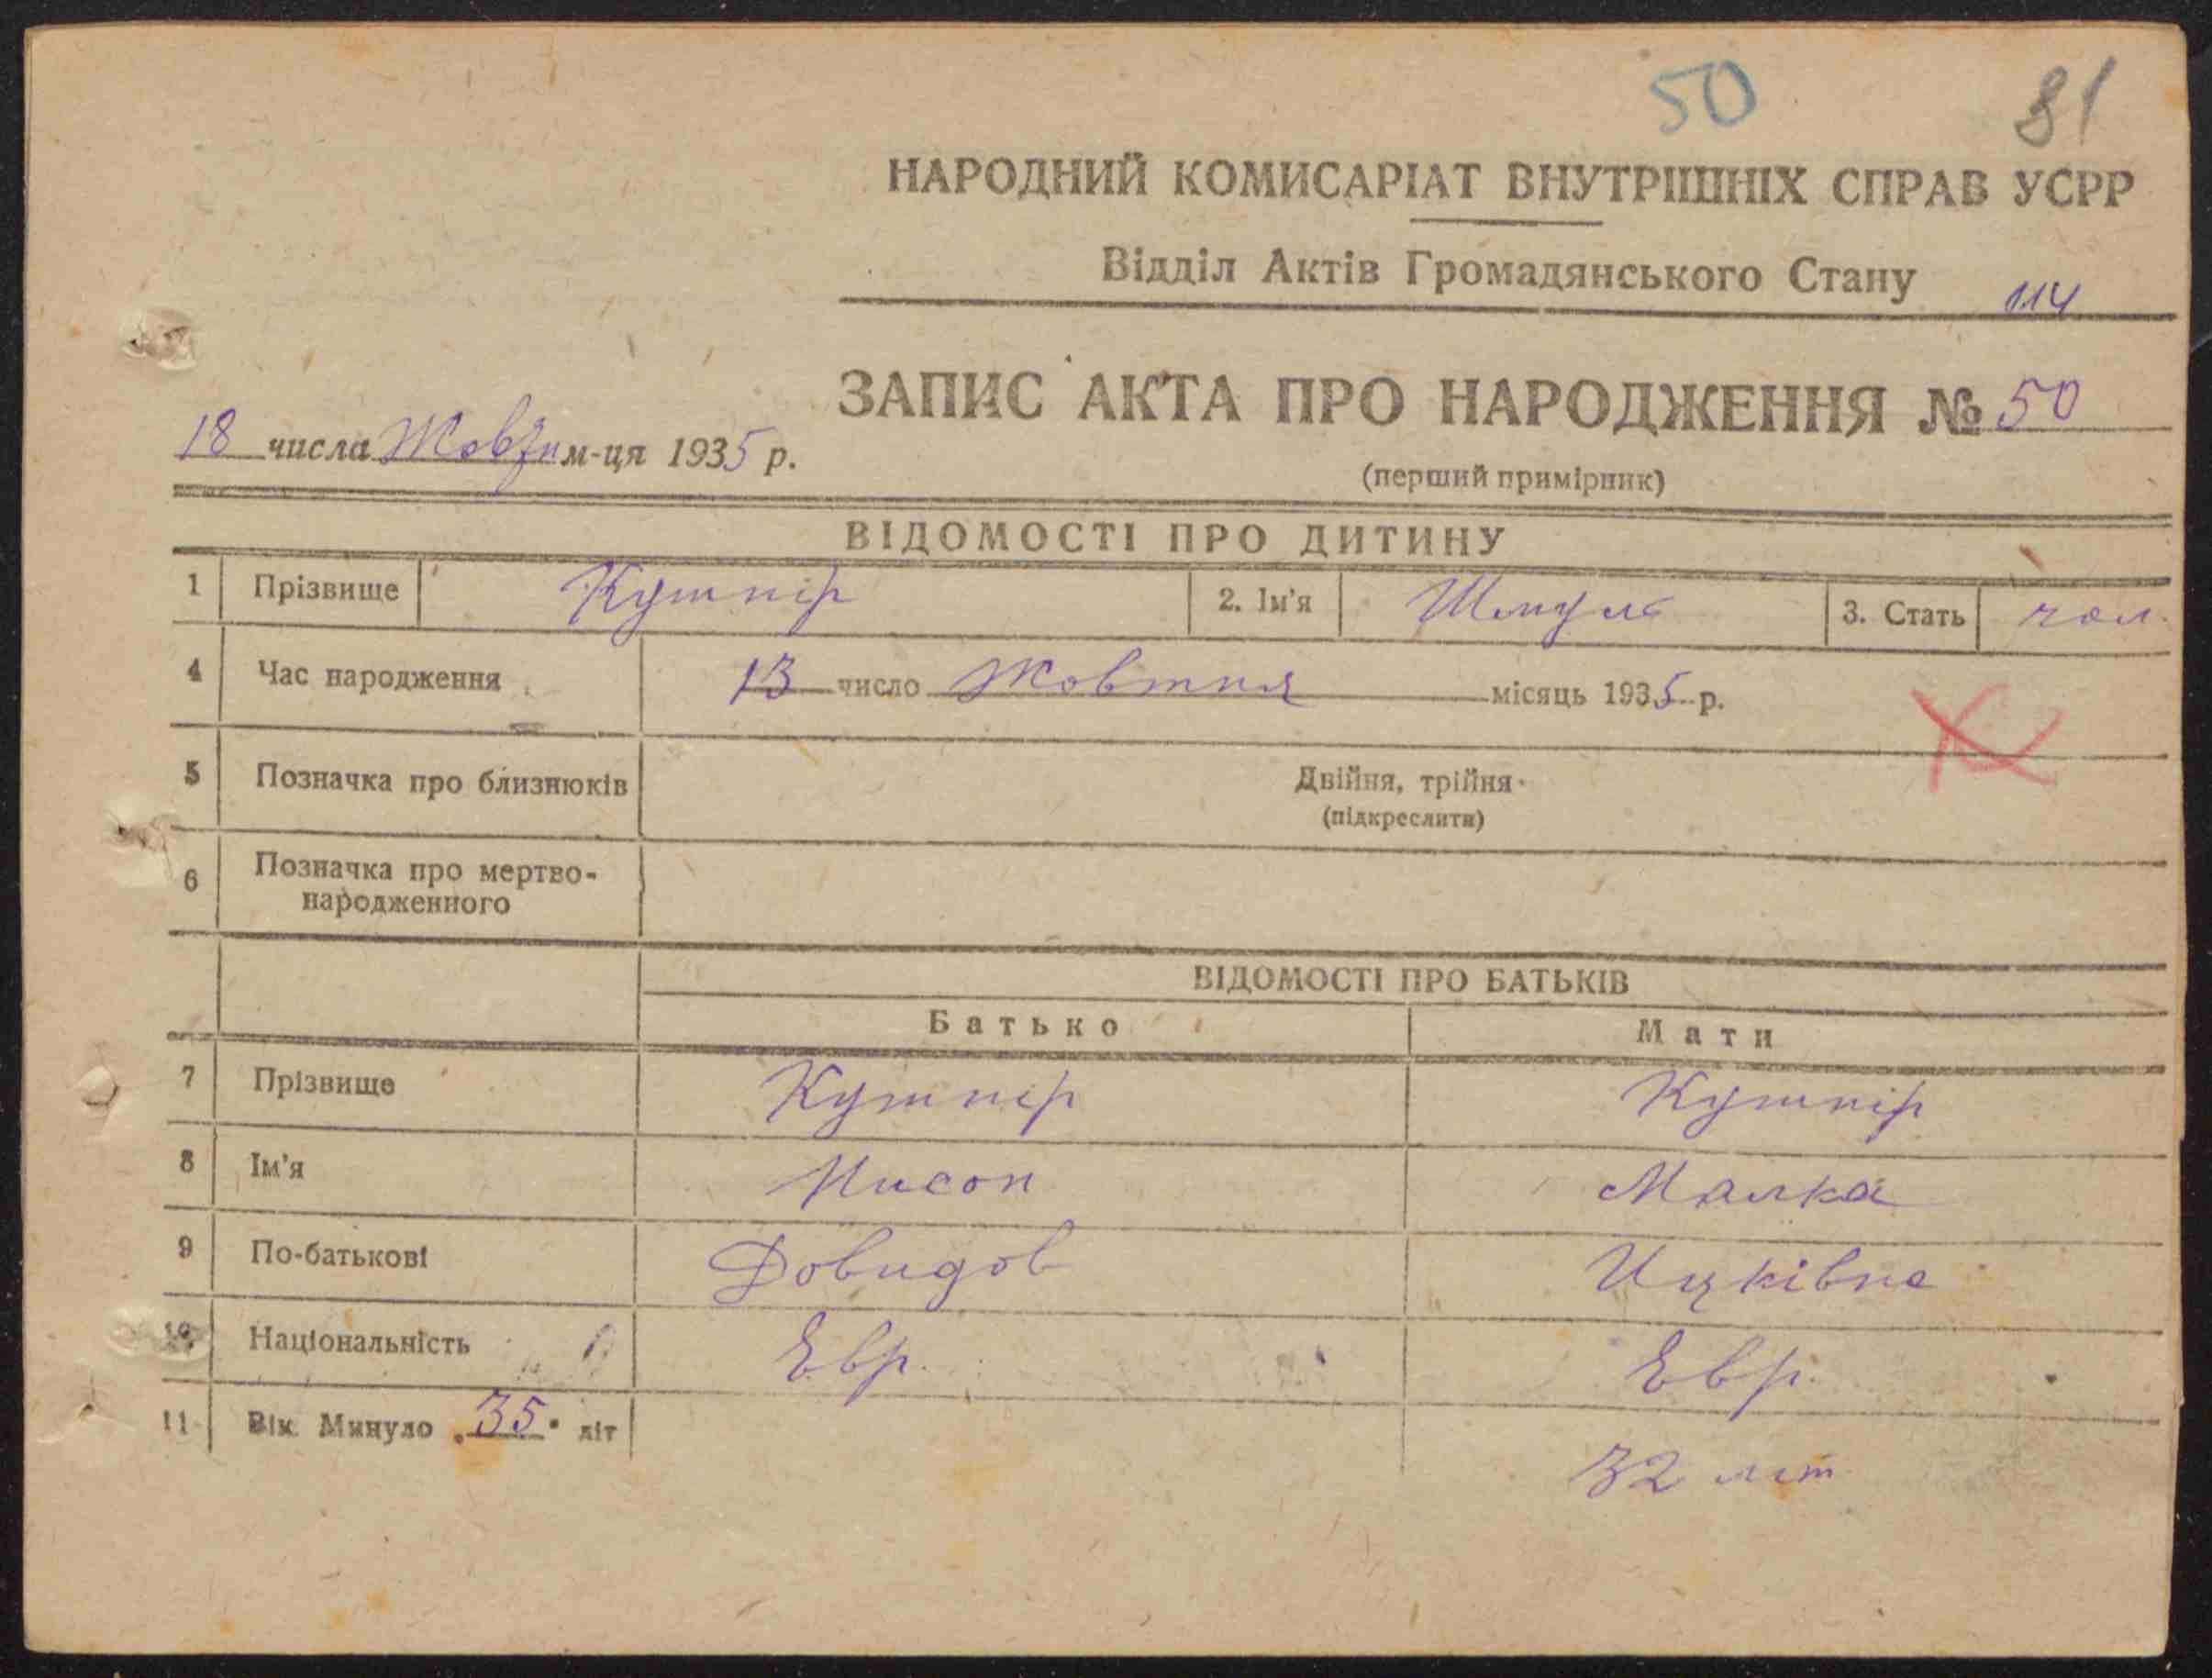 50 81
НАРОДНИЙ КОМИСАРІАТ ВНУТРІШНІХ СПРАВ УСРР
Відділ Актів Громадянського Стану 114
ЗАПИС АКТА ПРО НАРОДЖЕННЯ № 50
18 числа м-ця 1935 р.
(перший примірник)
ВІДОМОСТІ ПРО ДИТИНУ
1 Прізвище Кушнір 2. Ім'я Шмуль 3. Стать чол.
4 Час народження 13 число Жовтня місяць 1935 р.
5 Позначка про близнюків Двійня, трійня
(підкреслити)
6 Позначка про мертво-
народженного
ВІДОМОСТІ ПРО БАТЬКІВ
Батько Мати
7 Прізвище Кушнір Кушнір
8 Ім'я Нисон Малка
9 По-батькові Довидов Ицківна
10 Національність Евр. Евр.
11 Вік. Минуло 35 літ
32 літ